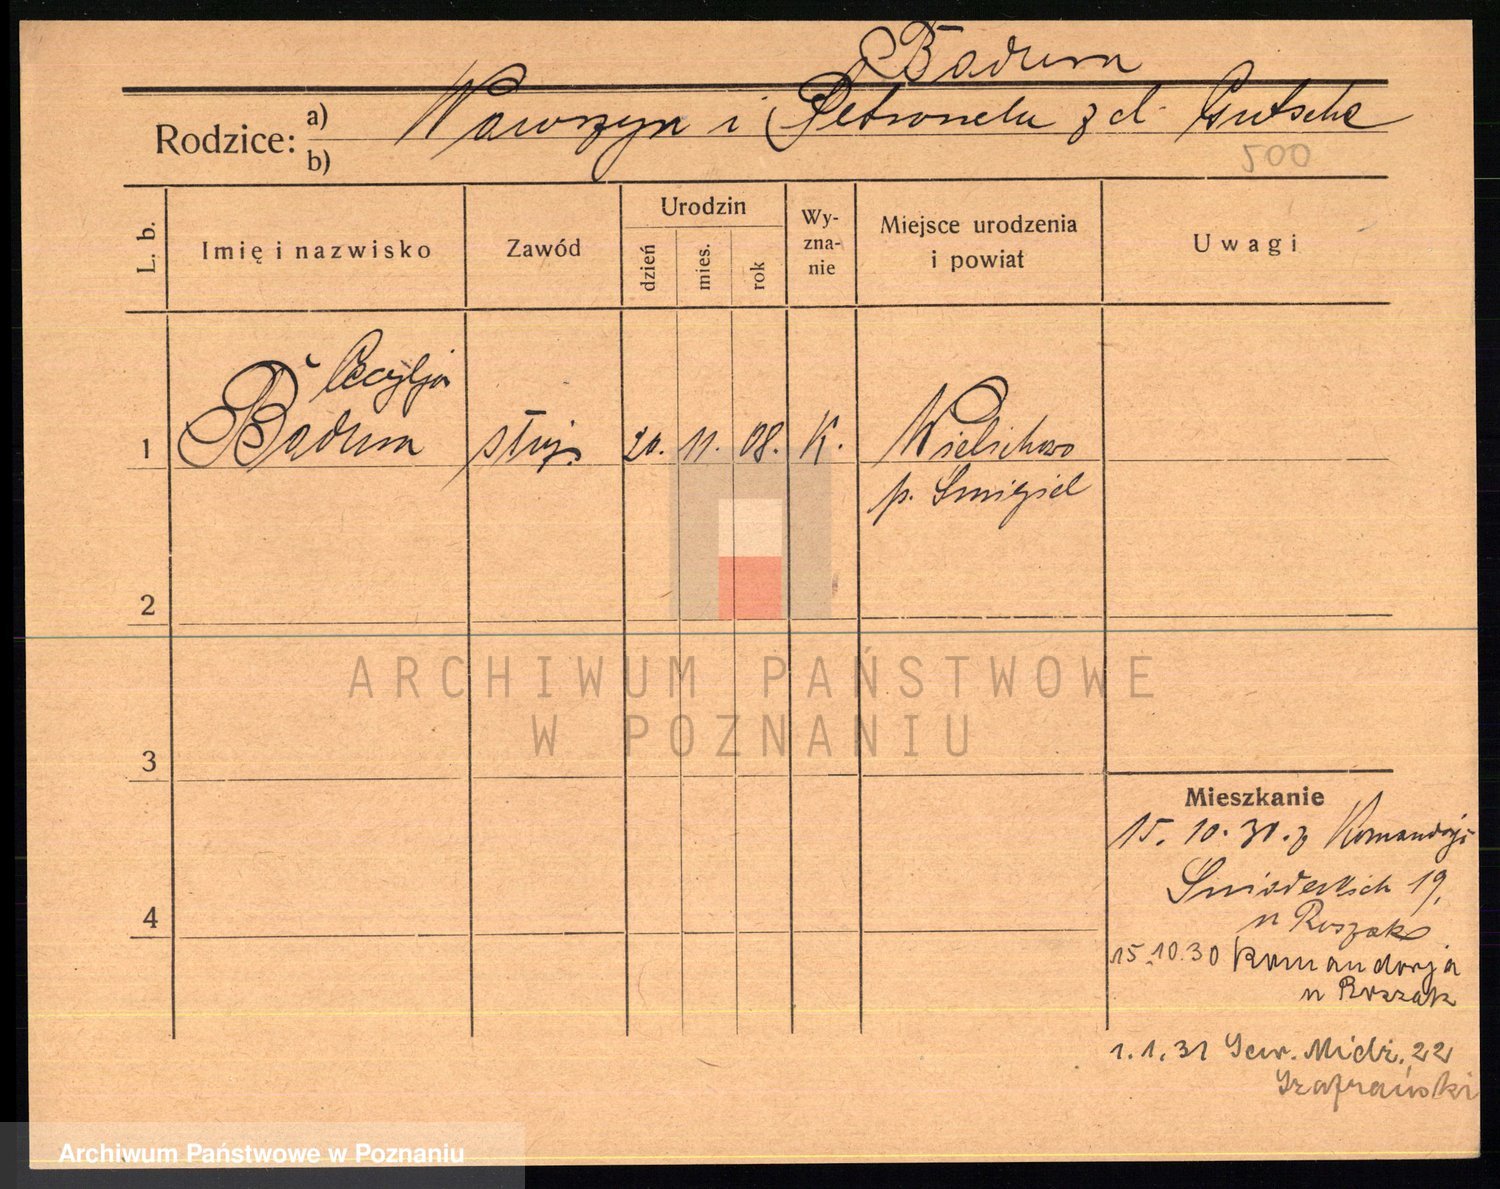 Badura
Rodzice: a) Wawrzyn i Petronela z d. Gutsche
b)
200
L. b.
Imię i nazwisko
Zawód
Urodzin
dzień
mies.
rok
Wy-
zna-
nie
Miejsce urodzenia
i powiat
Uwagi
Cecylja
1 Badura służ. 20. 11. 08. K. Wielichowo
p. Smigiel
2
ARCHIWUM PAŃSTWOWE
W POZNANIU
3
Mieszkanie
15. 10. 30. z Komandorji
4
Sniadeckich 19,
u Roszak
15.10.30 Komandorja
u Roszak
1.1.31 Sew. Mielż. 22
Szafrański
Archiwum Państwowe w Poznaniu